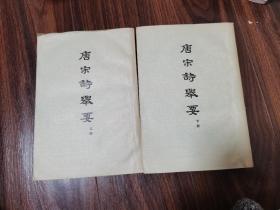 唐宋詩舉要
上册
唐宋詩舉要
下册